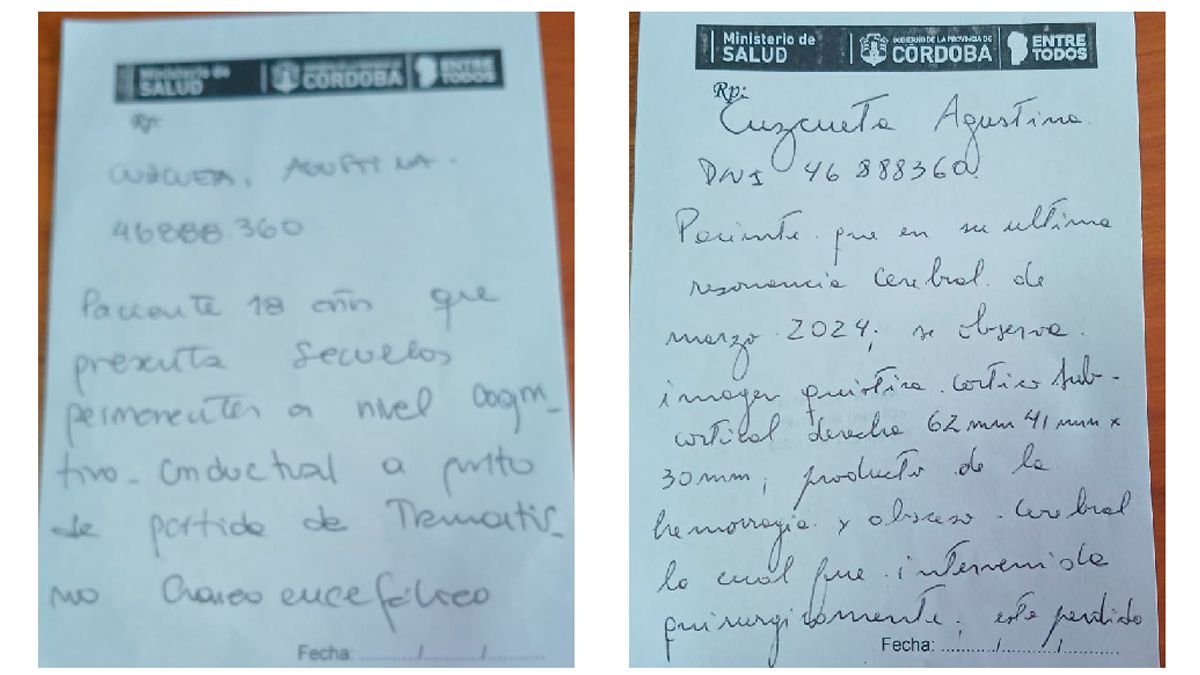 Ministerio de
SALUD
GOBIERNO DE LA PROVINCIA DE
CÓRDOBA
ENTRE
TODOS
Rp:
CUZCUETA, AGUSTINA.
46888.360
Paciente 18 años que
presenta secuelas
permanentes a nivel cogni-
tivo-conductual a punto
de partida de Traumatis-
mo Craneoencefálico
Fecha: ............/............/............
Ministerio de
SALUD
GOBIERNO DE LA PROVINCIA DE
CÓRDOBA
ENTRE
TODOS
Rp:
Cuzcueta Agustina.
DNI 46 888360
Paciente que en su ultima
resonancia cerebral de
marzo 2024; se observa
imagen quistica cortico sub-
cortical derecha 62mm 41mm x
30mm; producto de la
hemorragia y absceso cerebral
la cual fue intervenida
quirurgicamente; esta perdida
Fecha: ............/............/............